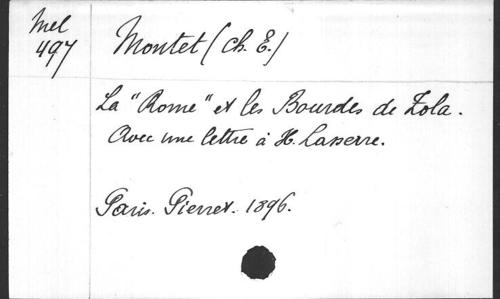 Mel
497
Montet (Ch. E.)
La "Rome" et les Bourdes de Zola.
Avec une lettre à H. Lasserre.
Paris. Pierret. 1896.